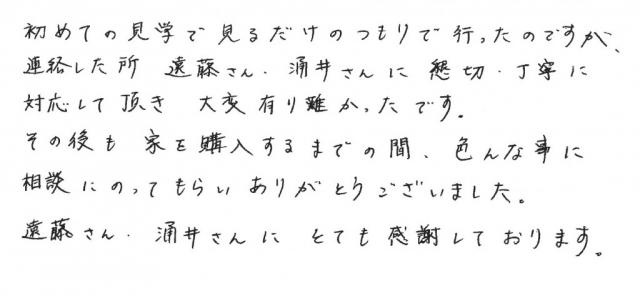 初めての見学で見るだけのつもりで行ったのですが、
連絡した所 遠藤さん・涌井さんに 懇切・丁寧に
対応して頂き 大変有り難かったです。
その後も 家を購入するまでの間、色んな事に
相談にのってもらい ありがとうございました。
遠藤さん・涌井さんに とても感謝しております。